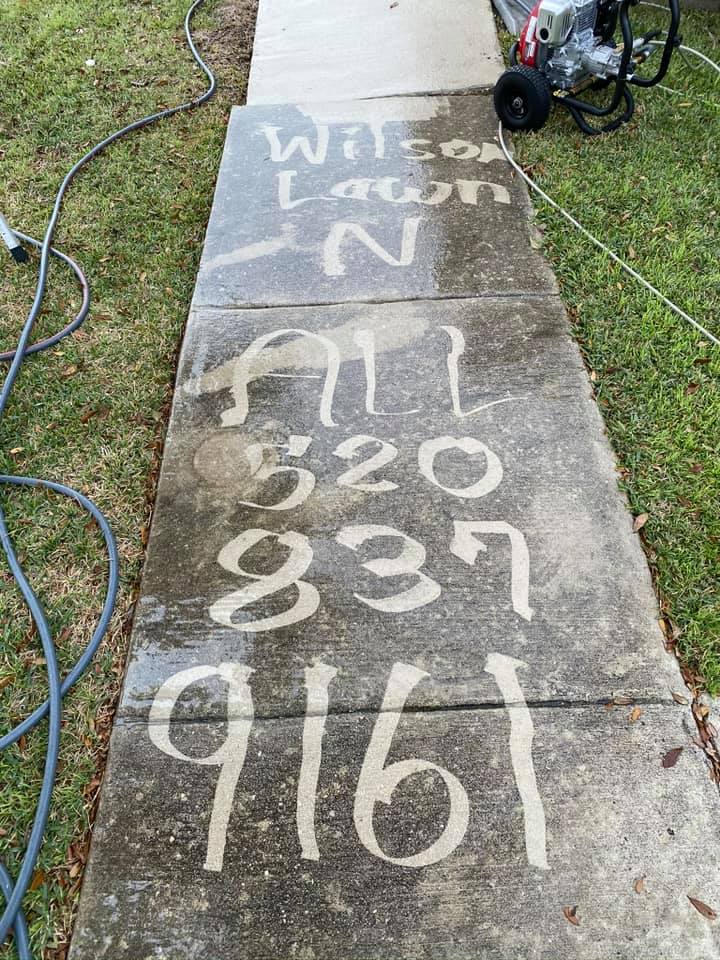 Wilson
Lawn
N
ALL
520
837
9161